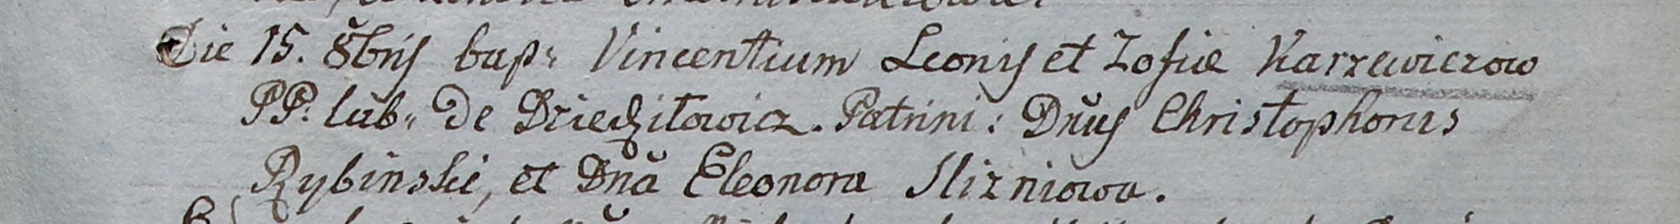 Die 15. 8bris bap: Vincentium Leonis et Zofiæ Karzewiczow
PP. lab: de Dziechitowicz. Patrini: Dnus Christophorus
Rybinski, et Dna Eleonora Slizniowa.